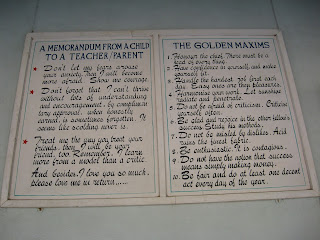 A MEMORANDUM FROM A CHILD
TO A TEACHER/PARENT
Don't let my fears arouse
your anxiety. Then I will become
more afraid. Show me courage.
Don't forget that I can't thrive
without lots of understanding
and encouragement, by complimen
tary approval, when honestly
earned, is sometimes forgotten. It
seems like scolding never is.
Treat me the way you treat your
friends, then I will be your
friend, too. Remember, I learn
more from a model than a critic.
And besides, I love you so much,
please love me in return.....
THE GOLDEN MAXIMS
1. Honour the chief. There must be a
head of every thing
2. Have confidence in yourself, and make
yourself fit.
3. Handle the hardest job first each
day. Easy ones are they pleasures.
4. Harmonise your work. Let sunshine
radiate and penetrate.
5. Do not be afraid of criticism. Criticise
yourself often.
6. Be glad and rejoice in the other fellow's
success. Study his methods.
7. Do not be misled by dislikes. Acid
ruins the finest fabric.
8. Be enthusiastic. It is contagious.
9. Do not have the notion that success
means simply making money.
10. Be fair and do at least one decent
act every day of the year.